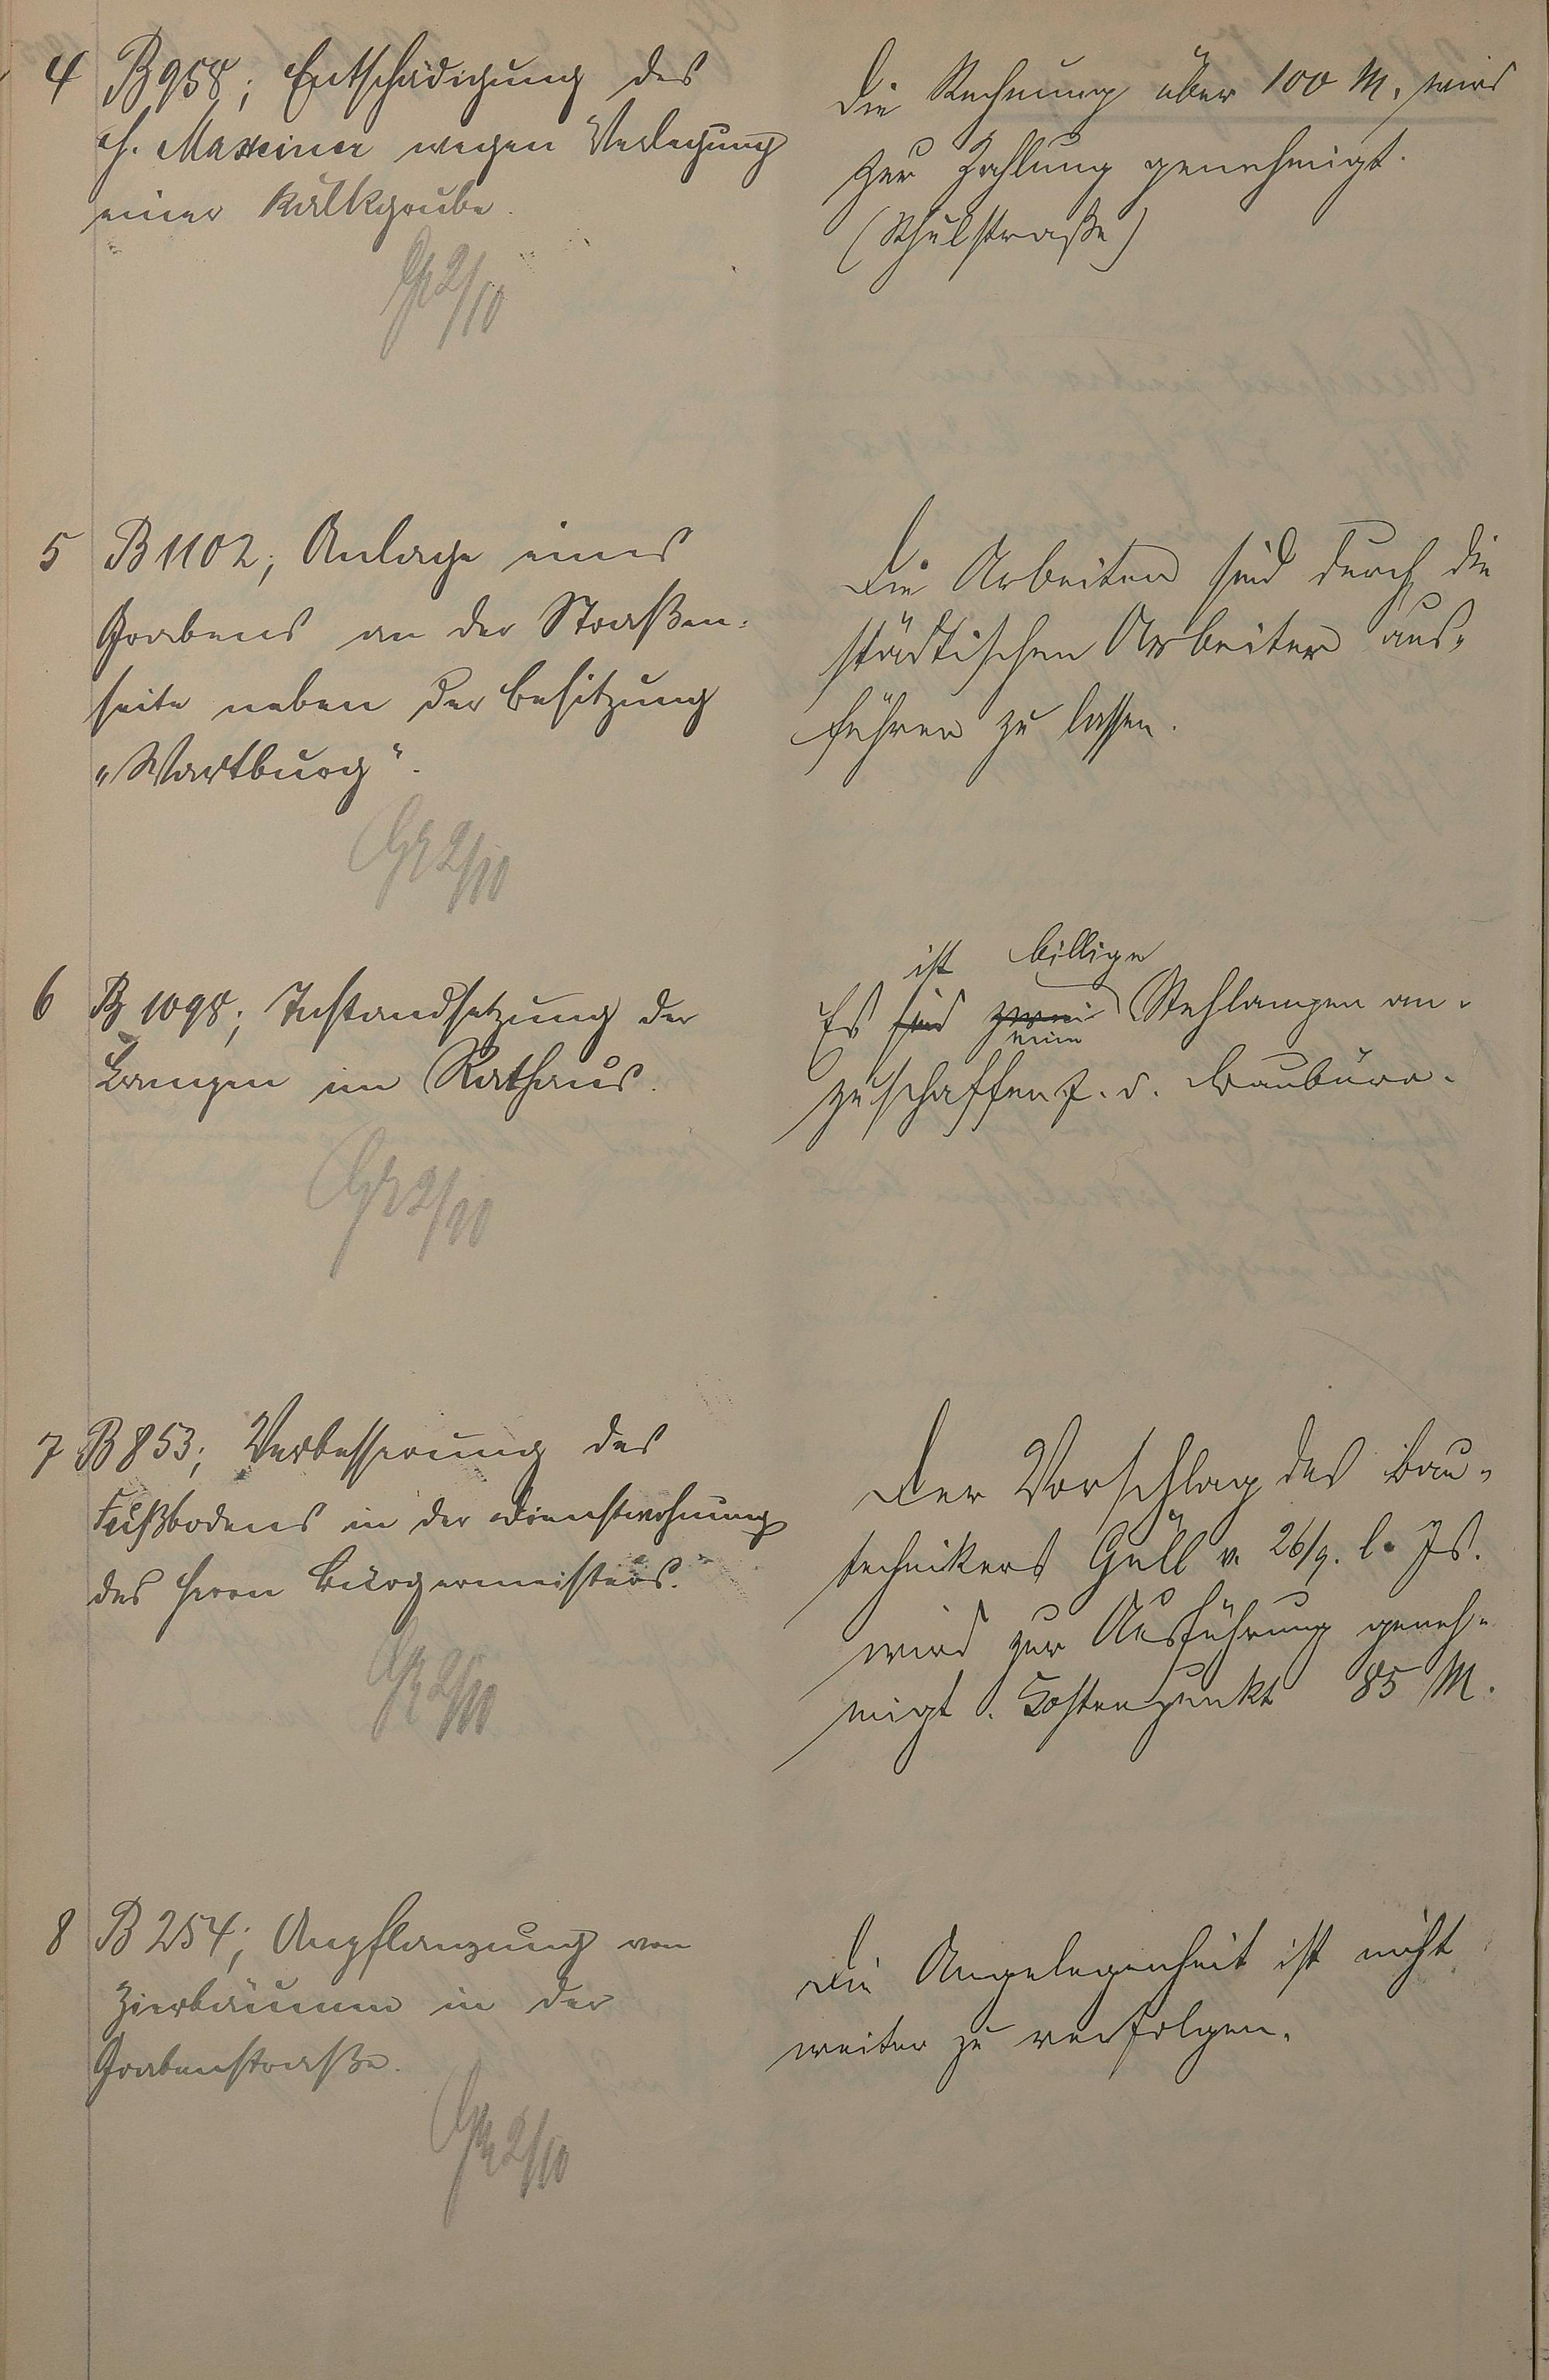 4 B 958; Entschädigung des
H. Maxeiner wegen Verlegung
einer Kalkgrube.
Die Rechnung über 100 M. wird
zur Zahlung genehmigt.
(Schulstraße)
2/10
5 B 1102; Anlage eines
Grabens an der Straßen-
seite neben der Besitzung
„Wartburg“.
Die Arbeiten sind durch die
städtischen Arbeiter aus-
führen zu lassen.
2/10
6 B 1098; Instandsetzung der
Lampen im Rathaus.
ist billige
Es sind zwei Stehlampen an-
eine
zuschaffen f. d. Baubüro.
2/10
7 B 853; Verbesserung des
Fußbodens in der Dienstwohnung
des Herrn Bürgermeisters.
Der Vorschlag des Bau-
technikers Güll v. 26/9. l. Js.
wird zur Ausführung geneh-
migt. Kostenpunkt 85 M.
2/10
8 B 254; Anpflanzung von
Zierbäumen in der
Grabenstraße.
Die Angelegenheit ist nicht
weiter zu verfolgen.
2/10